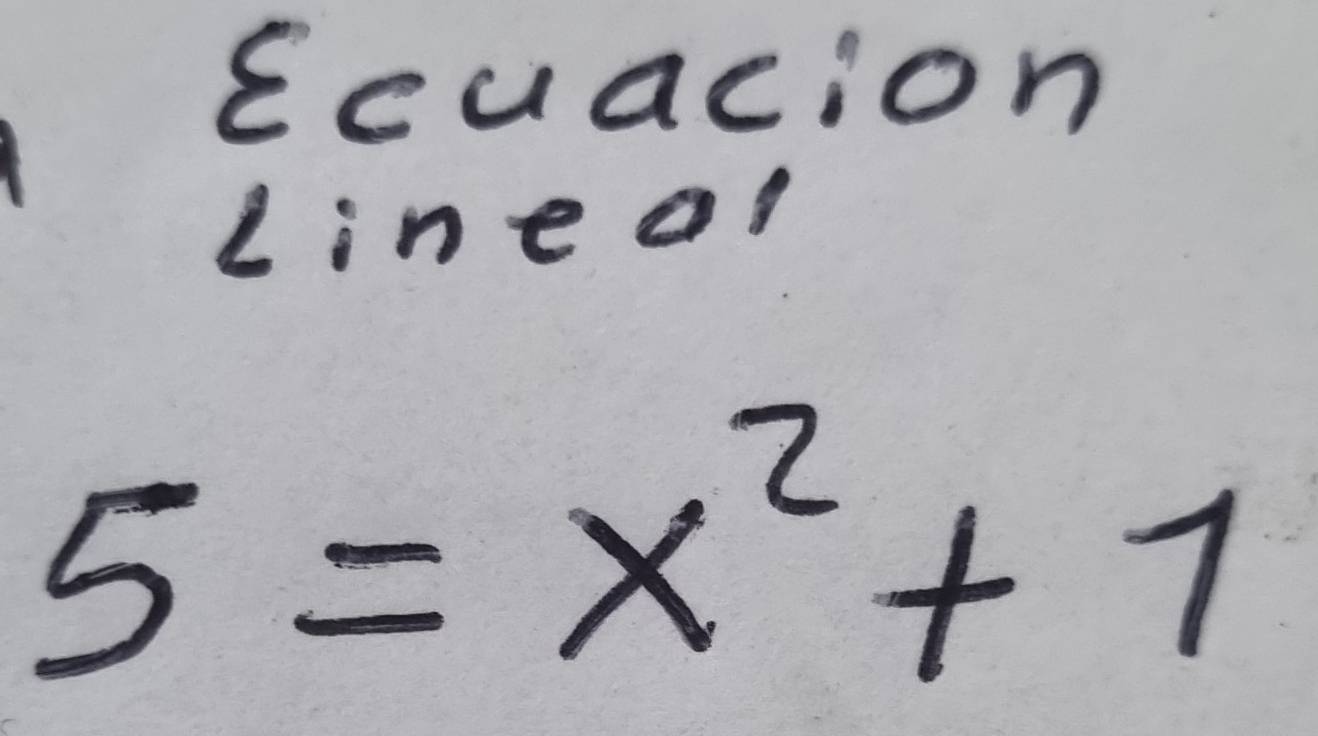 Ecuacion
Lineal
5 = x² + 1